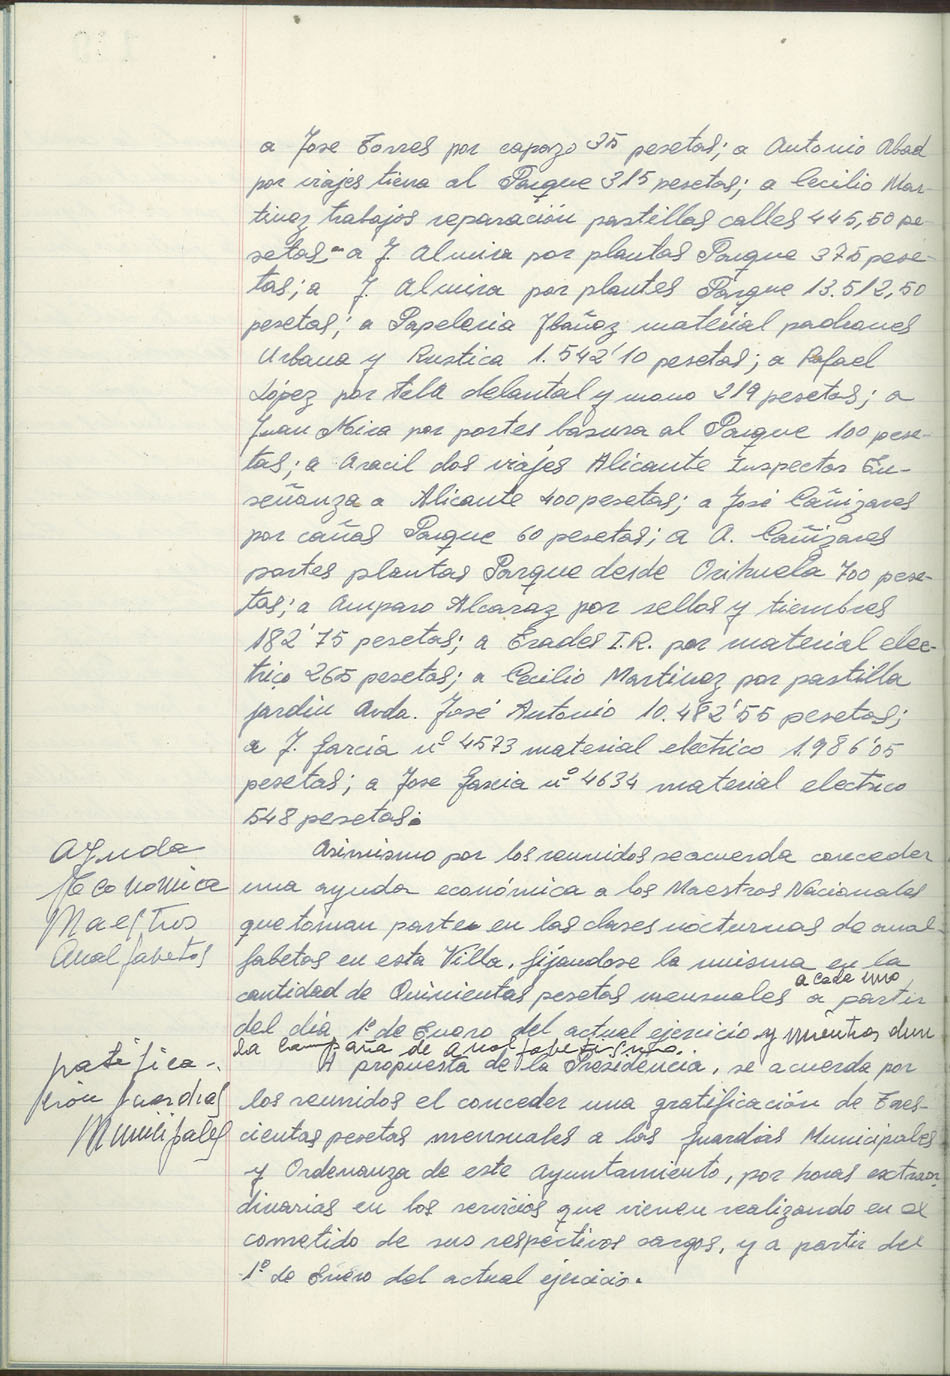 a Jose Torres por capazo 35 pesetas; a Antonio Abad
por viajes tierra al Parque 315 pesetas; a Cecilio Mar-
tinez trabajos reparación pastillas calles 445,50 pe-
setas - a J. Almira por plantas Parque 375 pese-
tas; a J. Almira por plantes Parque 13.512,50
pesetas; a Papeleria Ibañez material padrones
Urbana y Rustica 1.542'10 pesetas; a Rafael
López por tela delantal y mono 219 pesetas; a
Juan Mira por portes basura al Parque 100 pese-
tas; a Aracil dos viajes Alicante Inspector En-
señanza a Alicante 400 pesetas; a José Cañizares
por cañas Parque 60 pesetas; a A. Cañizares
portes plantas Parque desde Orihuela 700 pese-
tas; a Amparo Alcaraz por sellos y tiembres
182'75 pesetas; a Erades I.R. por material elec-
trico 265 pesetas; a Cecilio Martinez por pastilla
jardin Avda. José Antonio 10.482'55 pesetas;
a J. Garcia nº 4573 material electrico 1.986'05
pesetas; a Jose Garcia nº 4634 material electrico
548 pesetas.
Ayuda
Economica
Maestros
Analfabetos
Asimismo por los reunidos se acuerda conceder
una ayuda económica a los Maestros Nacionales
que toman parte en las clases nocturnas de anal-
fabetos en esta Villa, fijandose la misma en la
cantidad de Quinientas pesetas mensuales a cada uno a partir
del dia 1º de Enero del actual ejercicio y mientras dure
la Campaña de Analfabetismo.
Gratifica-
ción Guardias
Municipales
A propuesta de la Presidencia, se acuerda por
los reunidos el conceder una gratificación de Tres-
cientas pesetas mensuales a los Guardias Municipales
y Ordenanza de este Ayuntamiento, por horas extraor-
dinarias en los servicios que vienen realizando en el
cometido de sus respectivos cargos, y a partir del
1º de Enero del actual ejercicio.